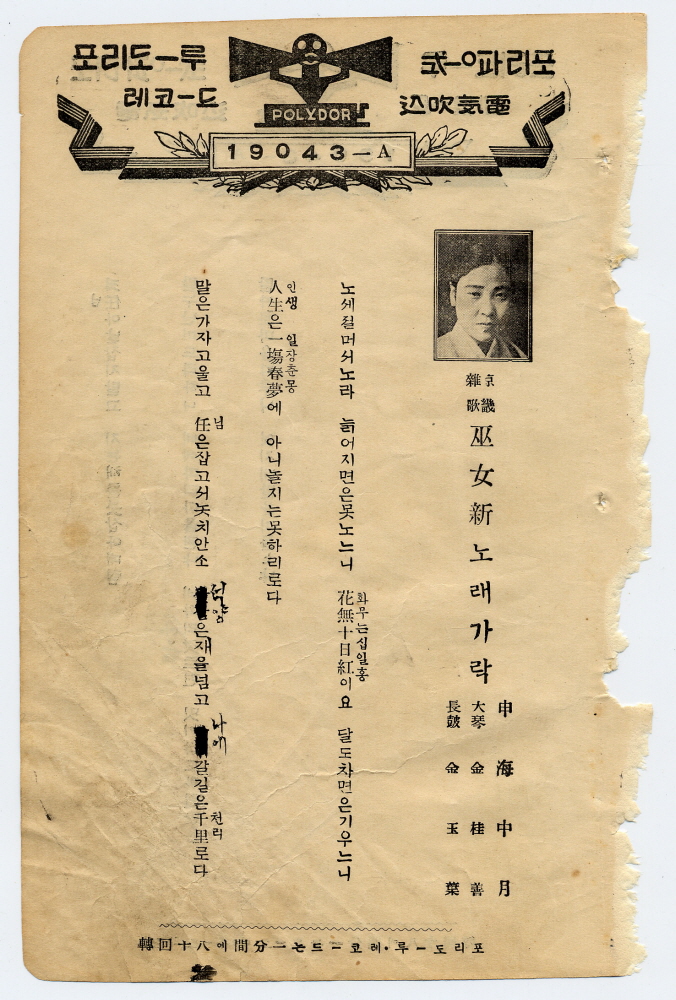 포리도ー루
레코ード
포리파 式
電氣吹込
POLYDOR
19043—A
京畿
雜歌
巫女新노래가락
申海中月
大琴 金桂善
長皷 金玉葉
노세젊머서노라 늙어지면은못노느니 花無十日紅이요 달도차면은기우느니
화무는십일홍
人生은一塲春夢에 아니놀지는못하리로다
인생 일장춘몽
말은가자고울고 任은잡고서놋치안소 은재을넘고 갈길은千里로다
님 나에 천리
포리도ー루·레코ー드는一分間에八十回轉